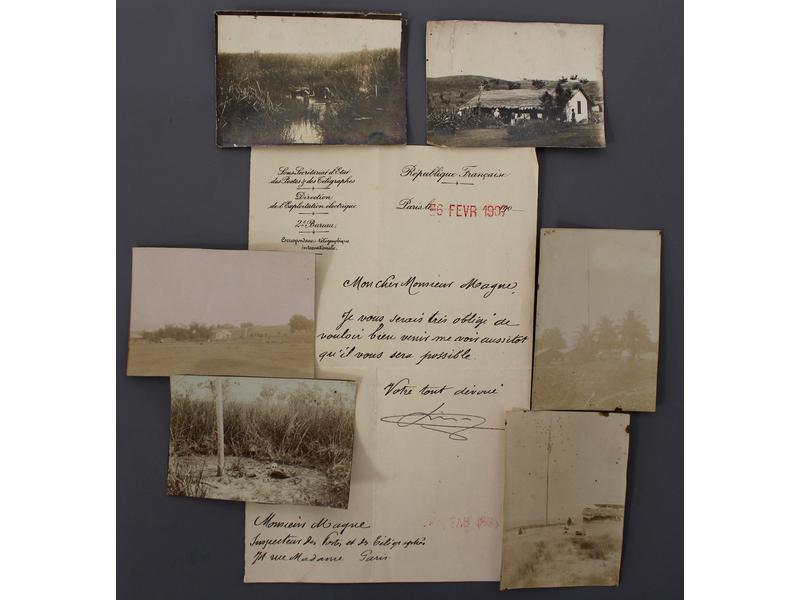 Sous Secrétariat d'Etat
des Postes & des Télégraphes
Direction
de l'Exploitation électrique
2e Bureau
Correspondance télégraphique
internationale.
République Française
Paris, le 26 FEVR 1907 190
Mon cher Monsieur Magne,
Je vous serais très obligé de
vouloir bien venir me voir aussitôt
qu'il vous sera possible.
Votre tout dévoué
Monsieur Magne
Inspecteur des Postes et des Télégraphes
71 rue Madame Paris